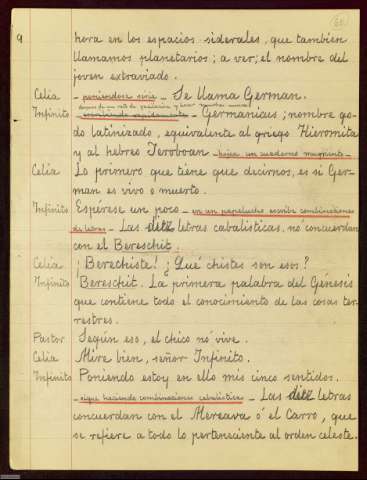 9
hora en los espacios siderales, que tambien
llamamos planetarios; a ver; el nombre del
joven extraviado.
Celia - poniendose seria - Se llama German.
despues de un rato de
Infinito - escribiendo rapidamente - Germanicus; nombre go-
do latinizado, equivalente al griego Hieromita
y al hebreo Jeroboan - hojea un cuaderno mugriento -
Celia Lo primero que tiene que decirnos, es si Ger-
man es vivo o muerto.
Infinito Espérese un poco - en un papelucho escribe combinaciones
de letras - Las diez letras cabalisticas, no concuerdan
con el Bereschit.
Celia ¡Berechiste! ¿Qué chistes son esos?
Infinito Bereschit. La primera palabra del Génesis
que contiene todo el conocimiento de las cosas ter-
restres.
Pastor Según eso, el chico no vive.
Celia Mire bien, señor Infinito.
Infinito Poniendo estoy en ello mis cinco sentidos.
- sigue haciendo combinaciones cabalisticas - Las diez letras
concuerdan con el Mercava ó el Carro, que
se refiere a todo lo perteneciente al orden celeste.